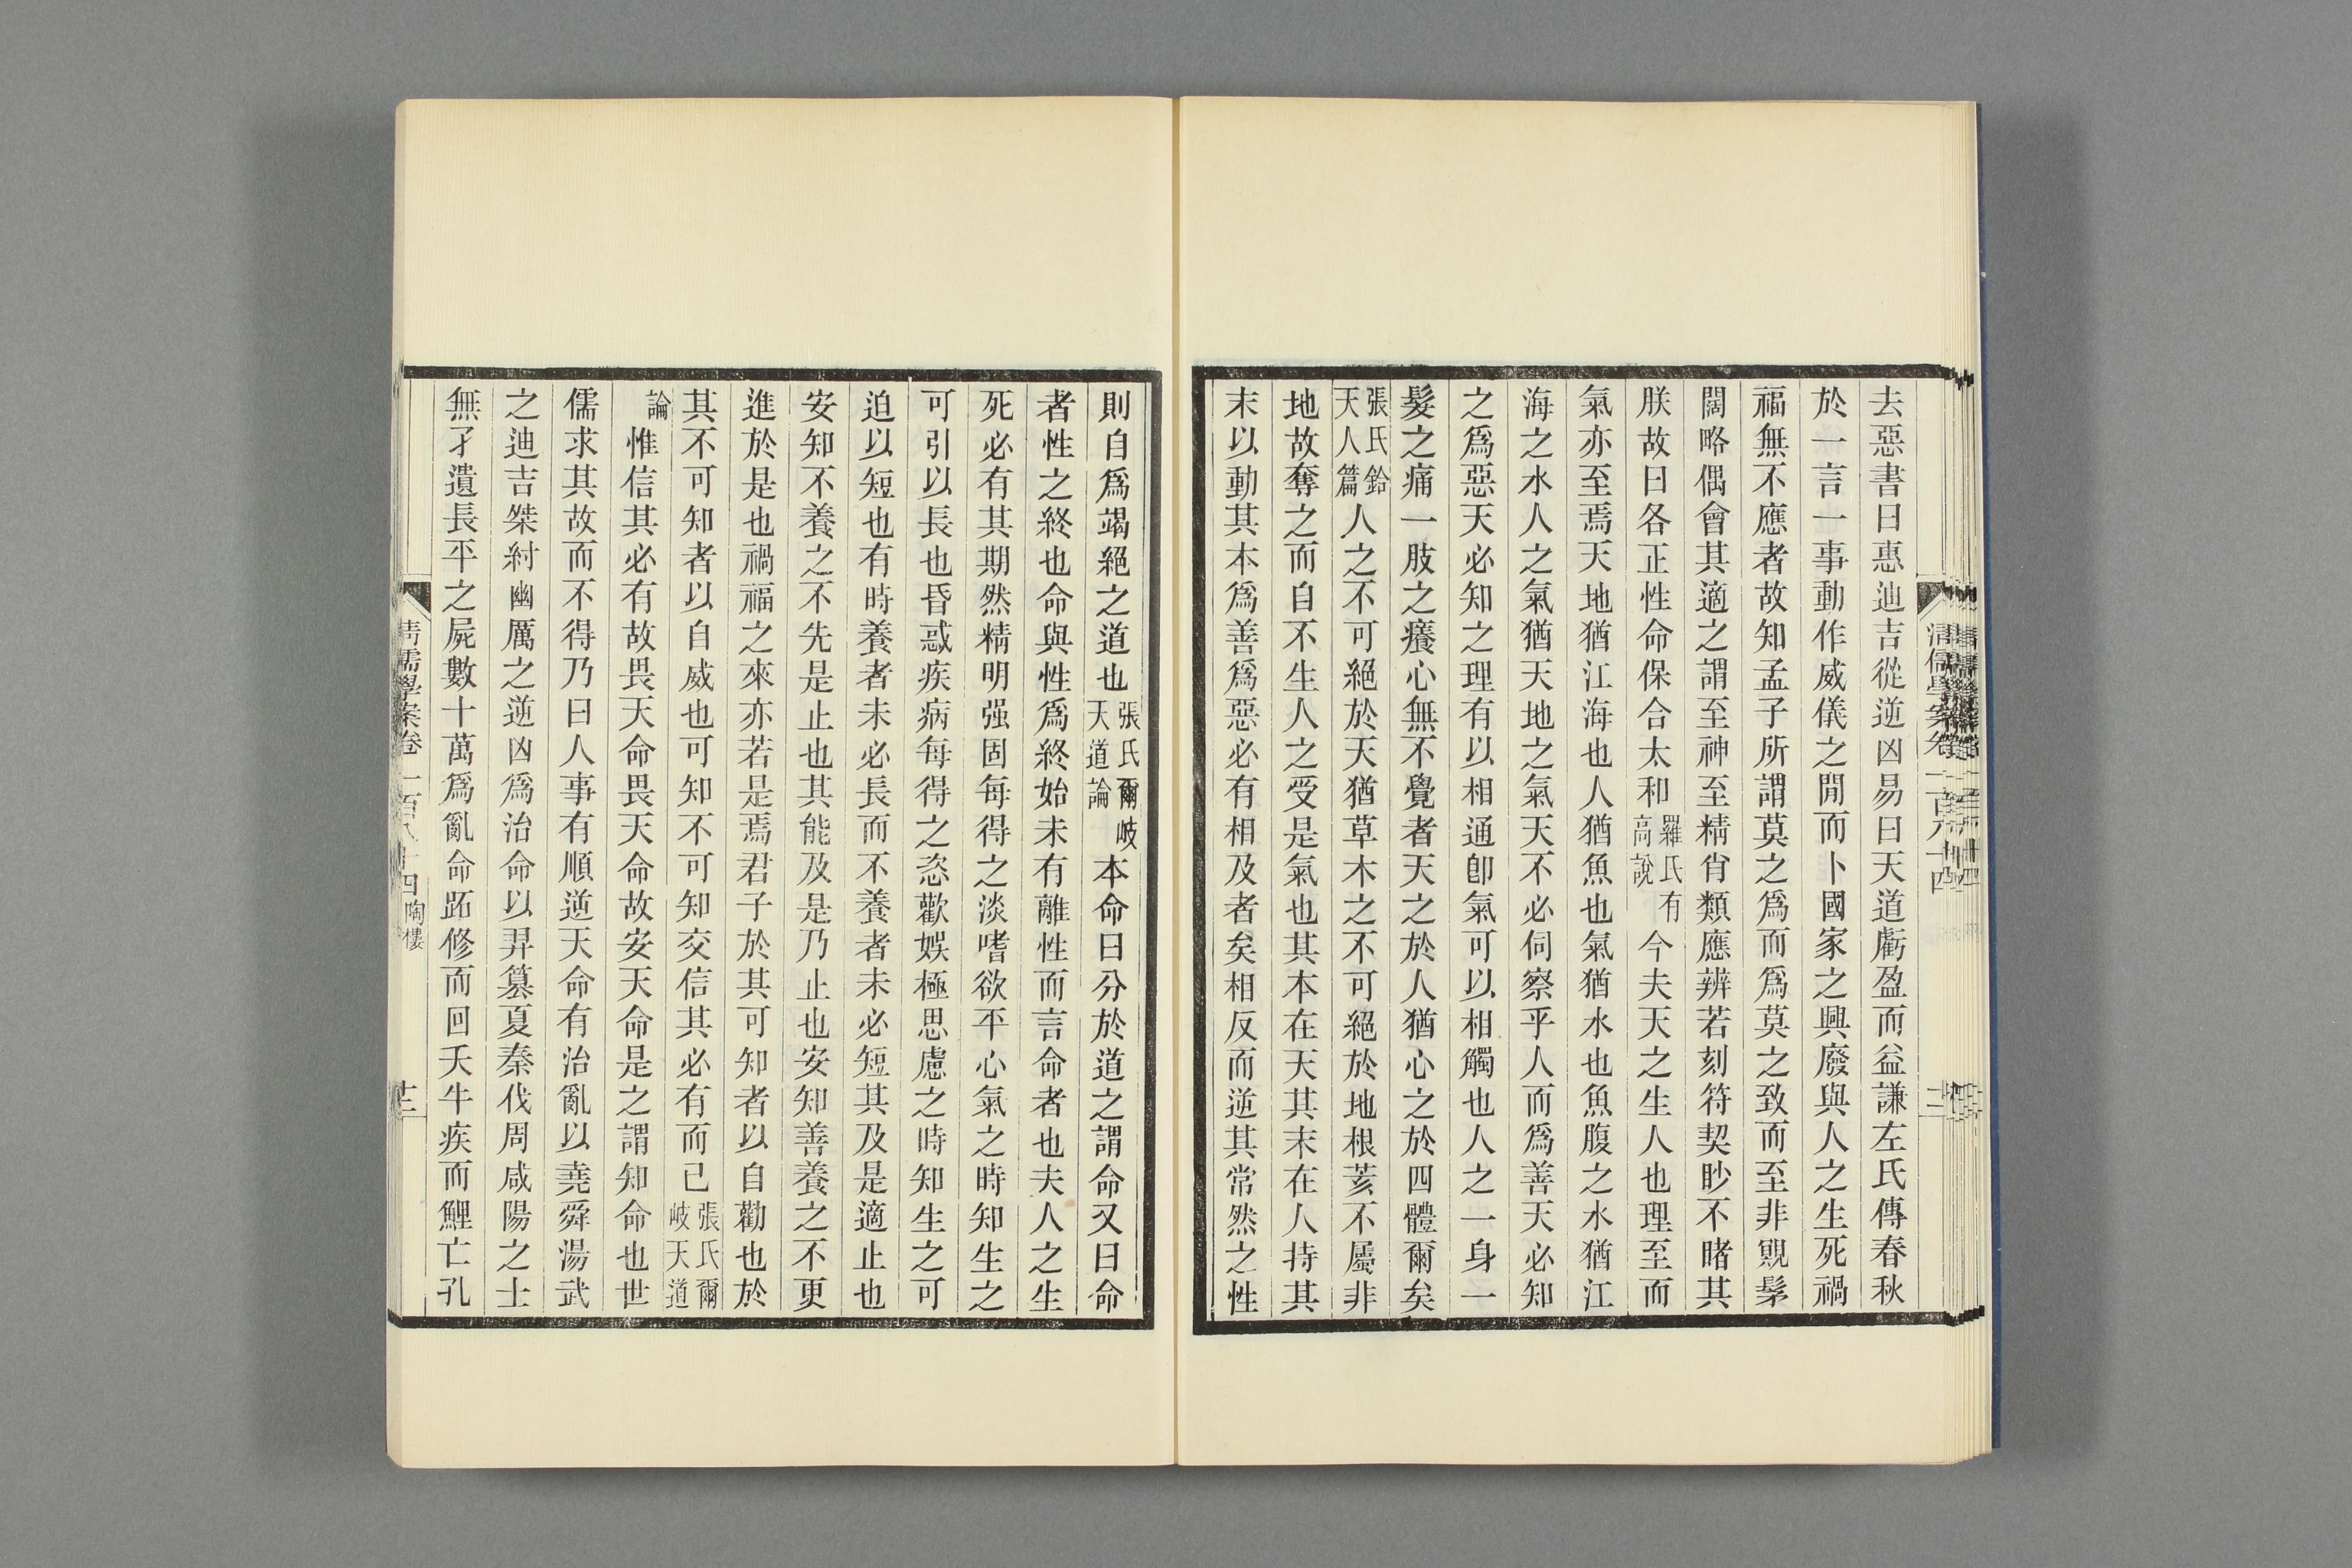 去惡書曰惠迪吉從逆凶易曰天道虧盈而益謙左氏傳春秋
於一言一事動作威儀之閒而卜國家之興廢與人之生死禍
福無不應者故知孟子所謂莫之爲而爲莫之致而至非覬髳
闊略偶會其適之謂至神至精肖類應辨若刻符契眇不睹其
朕故曰各正性命保合太和羅氏有高說今夫天之生人也理至而
氣亦至焉天地猶江海也人猶魚也氣猶水也魚腹之水猶江
海之水人之氣猶天地之氣天不必伺察乎人而爲善天必知
之爲惡天必知之理有以相通卽氣可以相觸也人之一身一
髮之痛一肢之癢心無不覺者天之於人猶心之於四體爾矣
張氏鉿天人篇人之不可絕於天猶草木之不可絕於地根荄不屬非
地故奪之而自不生人之受是氣也其本在天其末在人持其
末以動其本爲善爲惡必有相及者矣相反而逆其常然之性
清儒學案卷一百八十四
則自爲竭絕之道也張氏爾岐天道論本命曰分於道之謂命又曰命
者性之終也命與性爲終始未有離性而言命者也夫人之生
死必有其期然精明强固每得之淡嗜欲平心氣之時知生之
可引以長也昏惑疾病每得之恣歡娛極思慮之時知生之可
迫以短也有時養者未必長而不養者未必短其及是適止也
安知不養之不先是止也其能及是乃止也安知善養之不更
進於是也禍福之來亦若是焉君子於其可知者以自勸也於
其不可知者以自威也可知不可知交信其必有而已張氏爾岐天道
論惟信其必有故畏天命畏天命故安天命是之謂知命也世
儒求其故而不得乃曰人事有順逆天命有治亂以堯舜湯武
之迪吉桀紂幽厲之逆凶爲治命以羿篡夏秦伐周咸陽之士
無孑遺長平之屍數十萬爲亂命跖修而回夭牛疾而鯉亡孔
清儒學案卷一百八十四陶樓